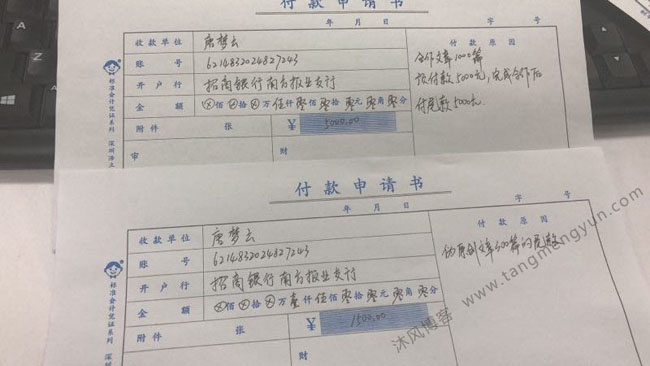 付款申请书
年 月 日 字 号
收款单位 唐梦云 付款原因
账号 6214832024827243 合作文章1000篇
开户行 招商银行南方报业支行 预付款5000元,完成合作后
金额 ⊗佰⊗拾⊗万伍仟零佰零拾零元零角零分 付尾款5000元
附件 张 ¥ 5000.00
审 财
标准会计凭证系列
付款申请书
年 月 日 字 号
收款单位 唐梦云 付款原因
账号 6214832024827243 伪原创文章500篇的尾款
开户行 招商银行南方报业支行
金额 ⊗佰⊗拾⊗万壹仟伍佰零拾零元零角零分
附件 张 ¥ 1500.00
财
标准会计凭证系列
沐风博客 www.tangmengyun.com